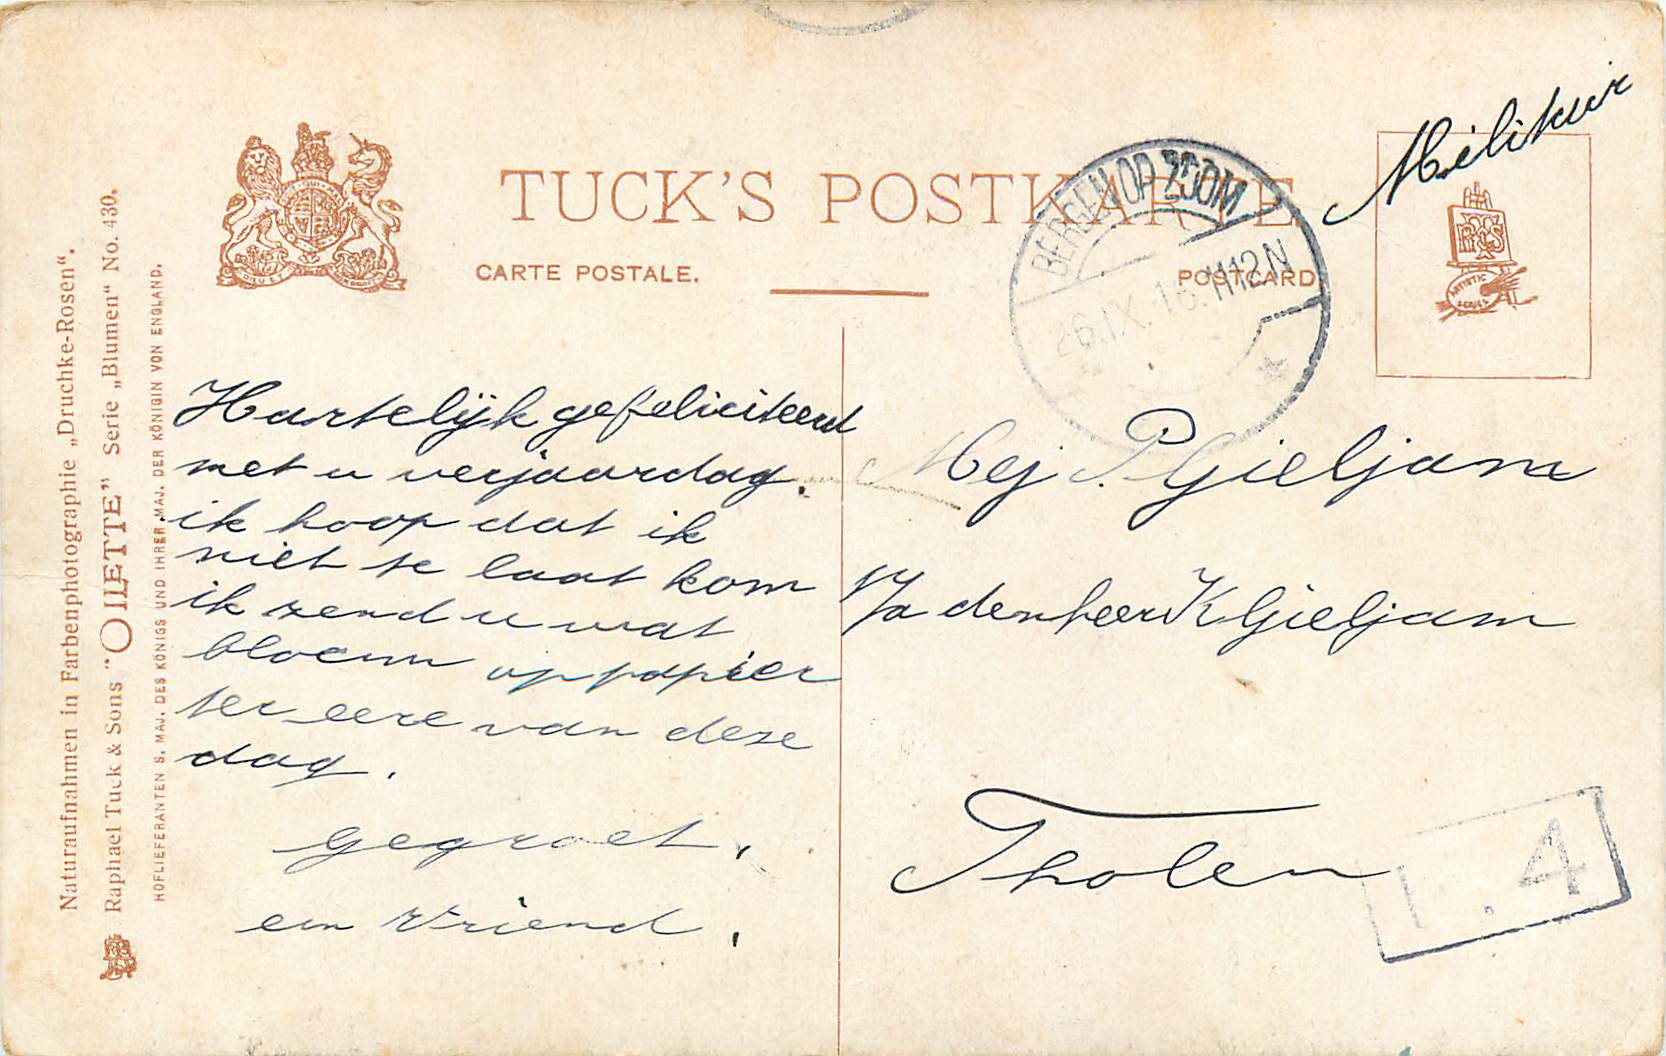 Naturaufnahmen in Farbenphotographie „Druchke-Rosen“.
Raphael Tuck & Sons "OILETTE" Serie „Blumen“ No. 430.
HOFLIEFERANTEN S. MAJ. DES KÖNIGS UND IHRER MAJ. DER KÖNIGIN VON ENGLAND.
TUCK'S POSTKARTE
CARTE POSTALE.
POSTCARD
BERGEN OP ZOOM
26.IX.16. 1112N
Militair
ARTISTIC SERIES
Hartelijk gefeliciteerd
met u verjaardag.
ik hoop dat ik
niet te laat kom
ik zend u wat
bloemen op papier
ter eere van deze
dag.
gegroet,
een vriend,
Mej P. Gieljam
p/a den heer K Gieljam
Tholen
1.4